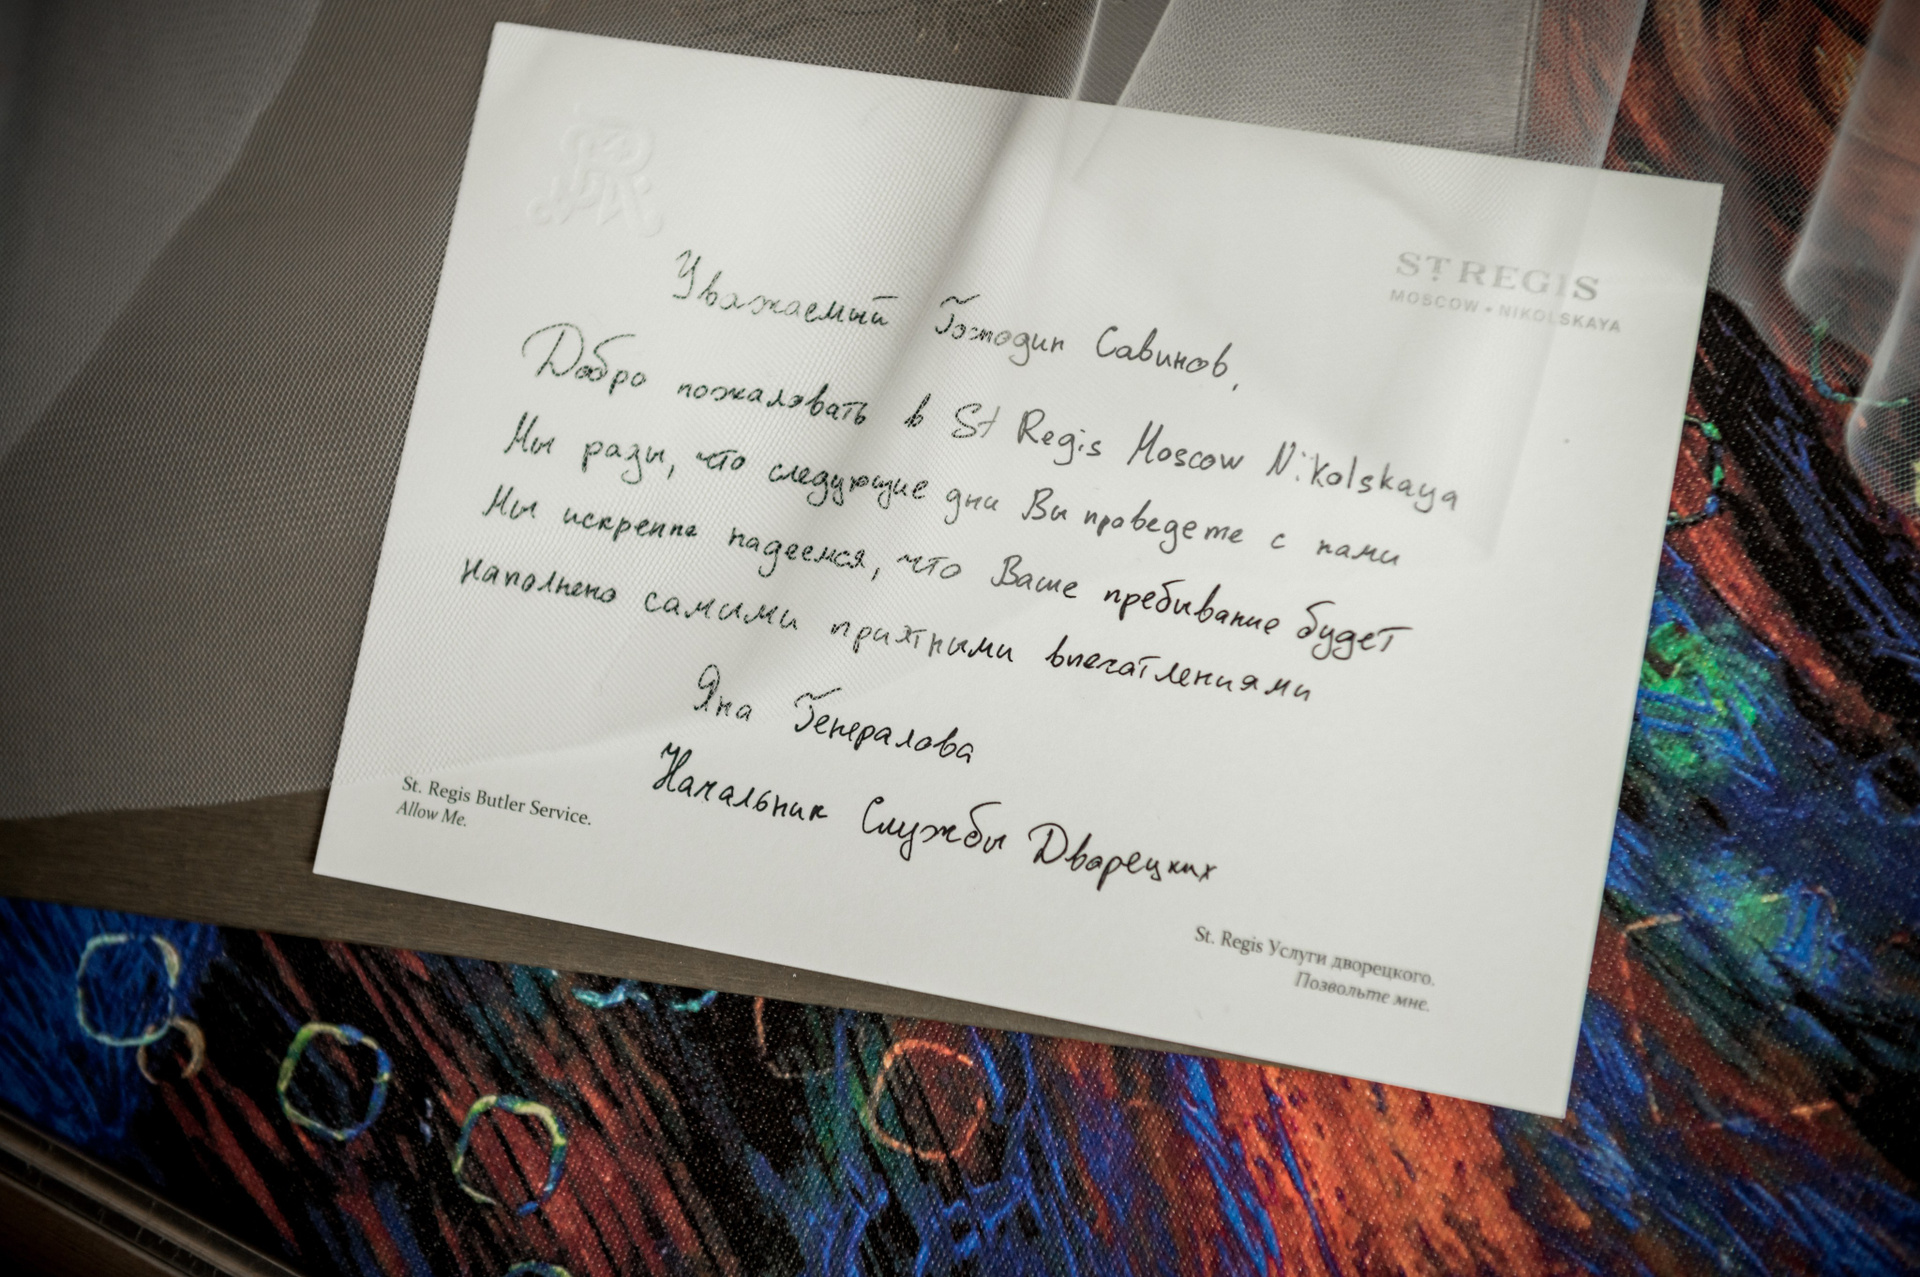 ST REGIS
MOSCOW • NIKOLSKAYA
Уважаемый Господин Савинов,
Добро пожаловать в St Regis Moscow Nikolskaya
Мы рады, что следующие дни Вы проведете с нами
Мы искренне надеемся, что Ваше пребывание будет
наполнено самыми приятными впечатлениями
Яна Генералова
Начальник Службы Дворецких
St. Regis Butler Service.
Allow Me.
St. Regis Услуги дворецкого.
Позвольте мне.